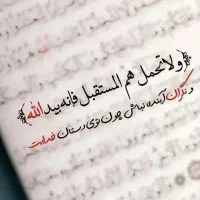 ﴿ولا تحمل هم المستقبل فإنه بيد الله﴾
و نگران آینده نباش چون توی دستان خداست